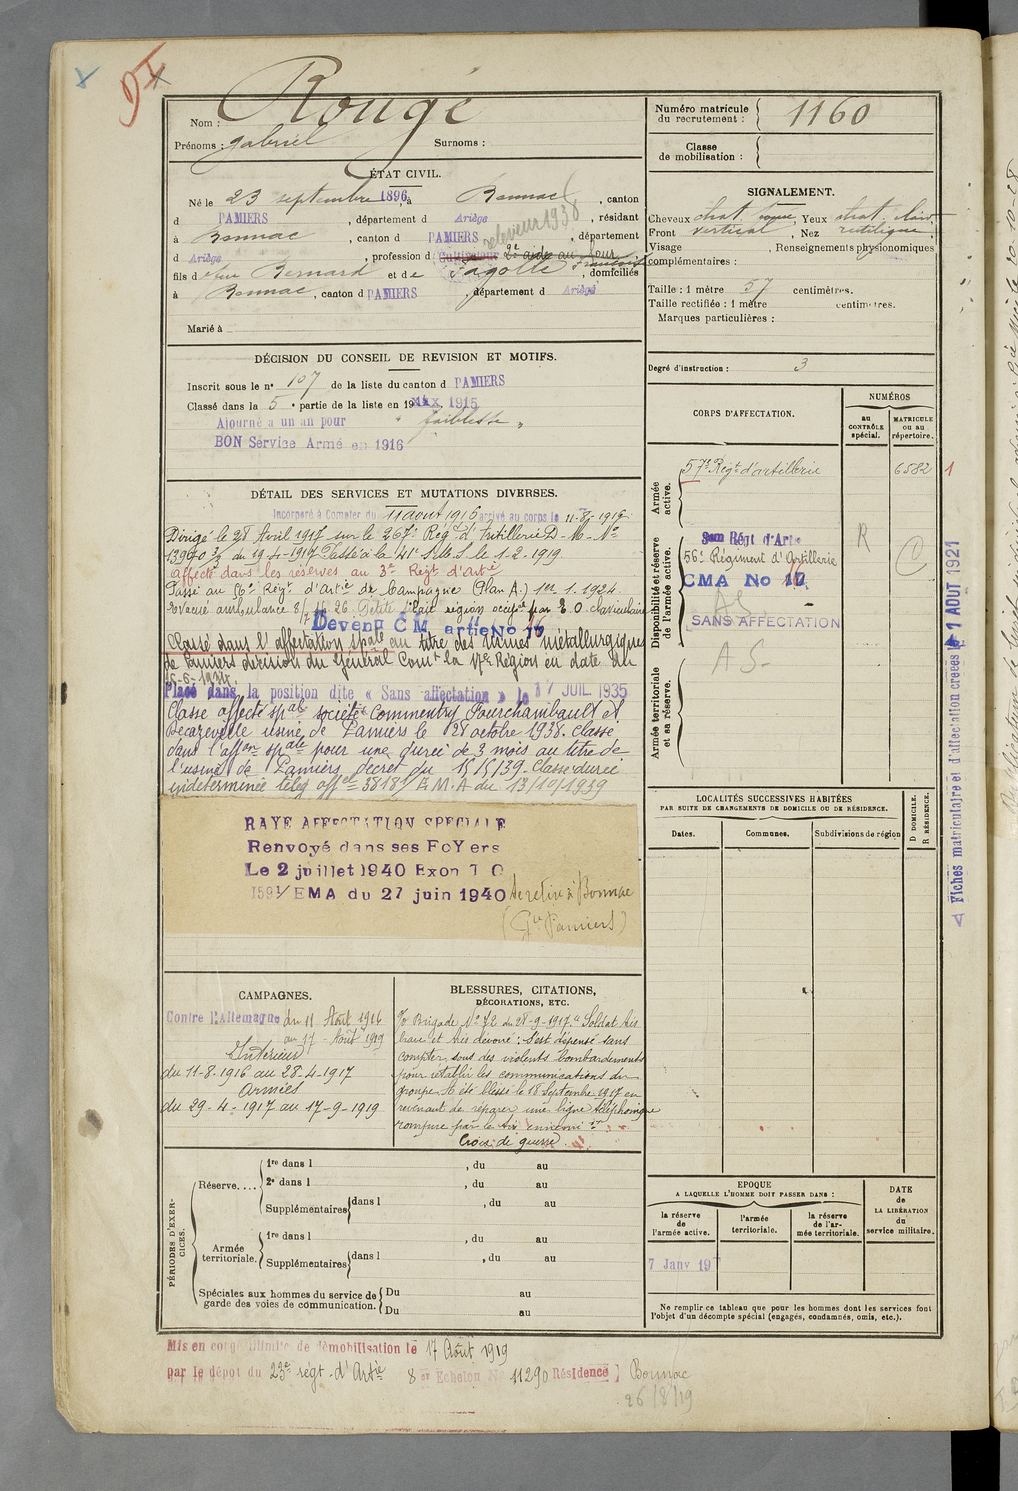 Nom : Rougé
Prénoms : Gabriel Surnoms :
Numéro matricule
du recrutement : 1160
Classe
de mobilisation :
ÉTAT CIVIL.
Né le 23 septembre 1896, à Bonnac, canton
d PAMIERS, département d Ariège, résidant
à Bonnac, canton d PAMIERS, département
d Ariège, profession d Cultivateur 2e aide au four
releveur 1938
fils d feu Bernard et de Fagolle Françoise, domiciliés
à Bonnac, canton d PAMIERS, département d Ariège
Marié à
SIGNALEMENT.
Cheveux chat. Yeux chat. clair
Front vertical, Nez rectiligne
Visage , Renseignements physionomiques
complémentaires :
Taille : 1 mètre 57 centimètres.
Taille rectifiée : 1 mètre centimètres.
Marques particulières :
Degré d'instruction : 3
DÉCISION DU CONSEIL DE REVISION ET MOTIFS.
Inscrit sous le n° 107 de la liste du canton d PAMIERS
Classé dans la 5e partie de la liste en 1915
Ajourné a un an pour " faiblesse "
BON Service Armé en 1916
DÉTAIL DES SERVICES ET MUTATIONS DIVERSES.
Incorporé à Compter du 11 aout 1916 arrivé au corps le 11-8-1916
Dirigé le 28 Avril 1917 sur le 267e Rég. d'Artillerie D-M-No
13940 3/5 du 19-4-1917. Passé à le 41e le 1.2.1919
affecté dans les réserves au 3e Regt d'artie
Passé au 56e Rég. d'artie de Campagne (Plan A.) 1er 1.1924
Devenu C M artie No 17
16
Classé dans l'affectation spale au titre des Usines métallurgiques
de Pamiers décision du Général Comt la 17e Région en date du
Placé dans la position dite « Sans affectation » le 17 JUIL. 1935
Classé affecté spal société Commentry Fourchambault et
Decazeville usine de Pamiers le 28 octobre 1938. Classé
dans l'affon spale pour une durée de 3 mois au titre de
l'usine de Pamiers décret du 15/5/39. Classé durée
indéterminée télég offel 38181 E.M.A du 13/10/1939
RAYE AFFECTATION SPECIALE
Renvoyé dans ses FoYers
Le 2 juillet 1940 Exon T O
1591/EMA du 27 juin 1940 Se retire à Bonnac
(Gie Pamiers)
CORPS D'AFFECTATION.
NUMÉROS
au
CONTRÔLE
spécial.
MATRICULE
ou au
répertoire.
Armée
active.
57e Régt d'artillerie 6582 1
Disponibilité et réserve
de l'armée active.
3em Régt d'Artie R
56e Régiment d'Artillerie C
CMA No 17
16
AS
SANS AFFECTATION
Armée territoriale
et sa réserve.
A S
Fiches matriculaire et d'affectation créées le 1 AOUT 1921
LOCALITÉS SUCCESSIVES HABITÉES
PAR SUITE DE CHANGEMENTS DE DOMICILE OU DE RÉSIDENCE.
Dates. Communes. Subdivisions de région
D DOMICILE.
R RÉSIDENCE.
CAMPAGNES.
Contre l'Allemagne du 11 Août 1916
au 17 - Août 1919
Intérieur
du 11-8-1916 au 28-4-1917
Armées
du 29-4-1917 au 17-9-1919
BLESSURES, CITATIONS,
DÉCORATIONS, ETC.
O/ Brigade No 72 du 28-9-1917. " Soldat très
brave et très dévoué : S'est dépensé sans
compter, sous des violents bombardements
pour rétablir les communications du
groupe. A été blessé le 18 Septembre 1917 en
revenant de réparer une ligne téléphonique
rompue par le tir ennemi "
Croix de guerre
PÉRIODES D'EXERCICES.
Réserve....
1re dans l , du au
2e dans l , du au
Supplémentaires dans l , du au
Armée
territoriale.
1re dans l , du au
Supplémentaires dans l , du au
Spéciales aux hommes du service de
garde des voies de communication.
Du au
Du au
EPOQUE
A LAQUELLE L'HOMME DOIT PASSER DANS :
la réserve
de
l'armée active.
l'armée
territoriale.
la réserve
de l'ar-
mée territoriale.
DATE
de
LA LIBÉRATION
du
service militaire.
7 Janv 19
Ne remplir ce tableau que pour les hommes dont les services font
l'objet d'un décompte spécial (engagés, condamnés, omis, etc.).
Mis en congé illimité de démobilisation le 17 Août 1919
par le dépôt du 23e régt d'Artie 8em Echelon N 11290 Résidence Bonnac
26/8/19